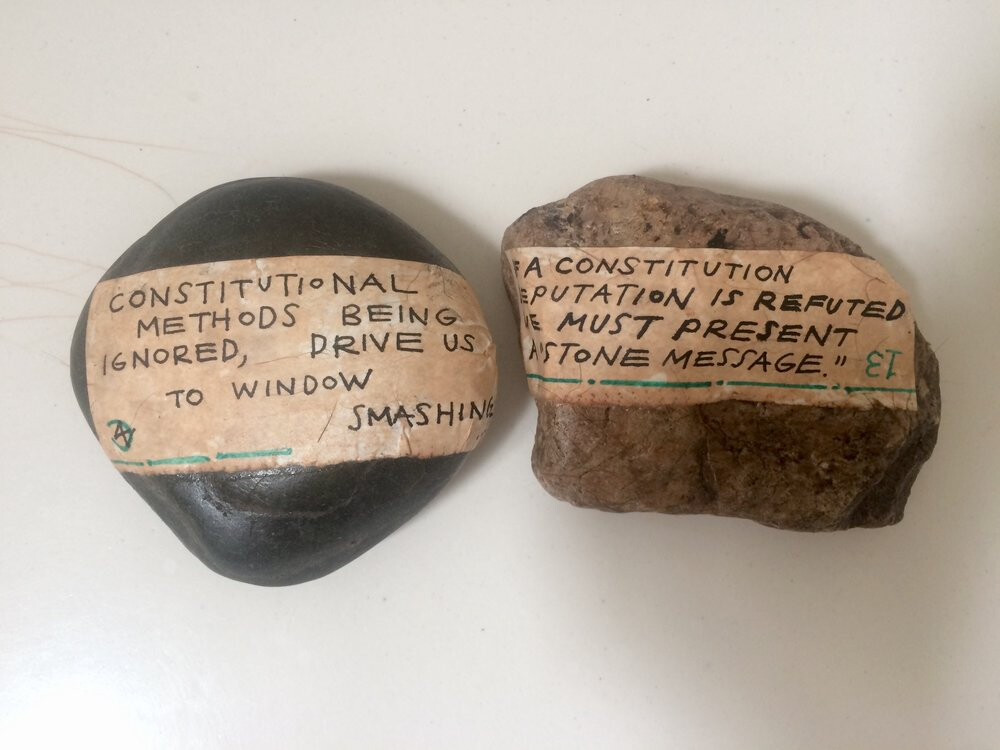 CONSTITUTIONAL
METHODS BEING
IGNORED, DRIVE US
TO WINDOW
SMASHING
A
A CONSTITUTION
EPUTATION IS REFUTED
E MUST PRESENT
A STONE MESSAGE."
13